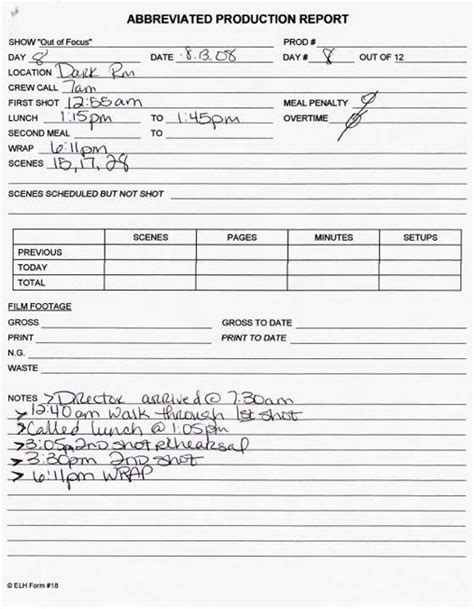 ABBREVIATED PRODUCTION REPORT
SHOW "Out of Focus" PROD #
DAY 8 DATE 8.13.08 DAY # 8 OUT OF 12
LOCATION Dark Rm
CREW CALL 7am
FIRST SHOT 12:55am MEAL PENALTY
LUNCH 1:15pm TO 1:45pm OVERTIME
SECOND MEAL TO
WRAP 6:11pm
SCENES 15, 17, 28
SCENES SCHEDULED BUT NOT SHOT
SCENES PAGES MINUTES SETUPS
PREVIOUS
TODAY
TOTAL
FILM FOOTAGE
GROSS GROSS TO DATE
PRINT PRINT TO DATE
N.G.
WASTE
NOTES >Director arrived @ 7:30am
>12:40am walk through 1st shot
>Called lunch @ 1:05pm
>3:05p 2nd shot rehearsal
>3:30pm 2nd shot
>6:11pm WRAP
© ELH Form #18